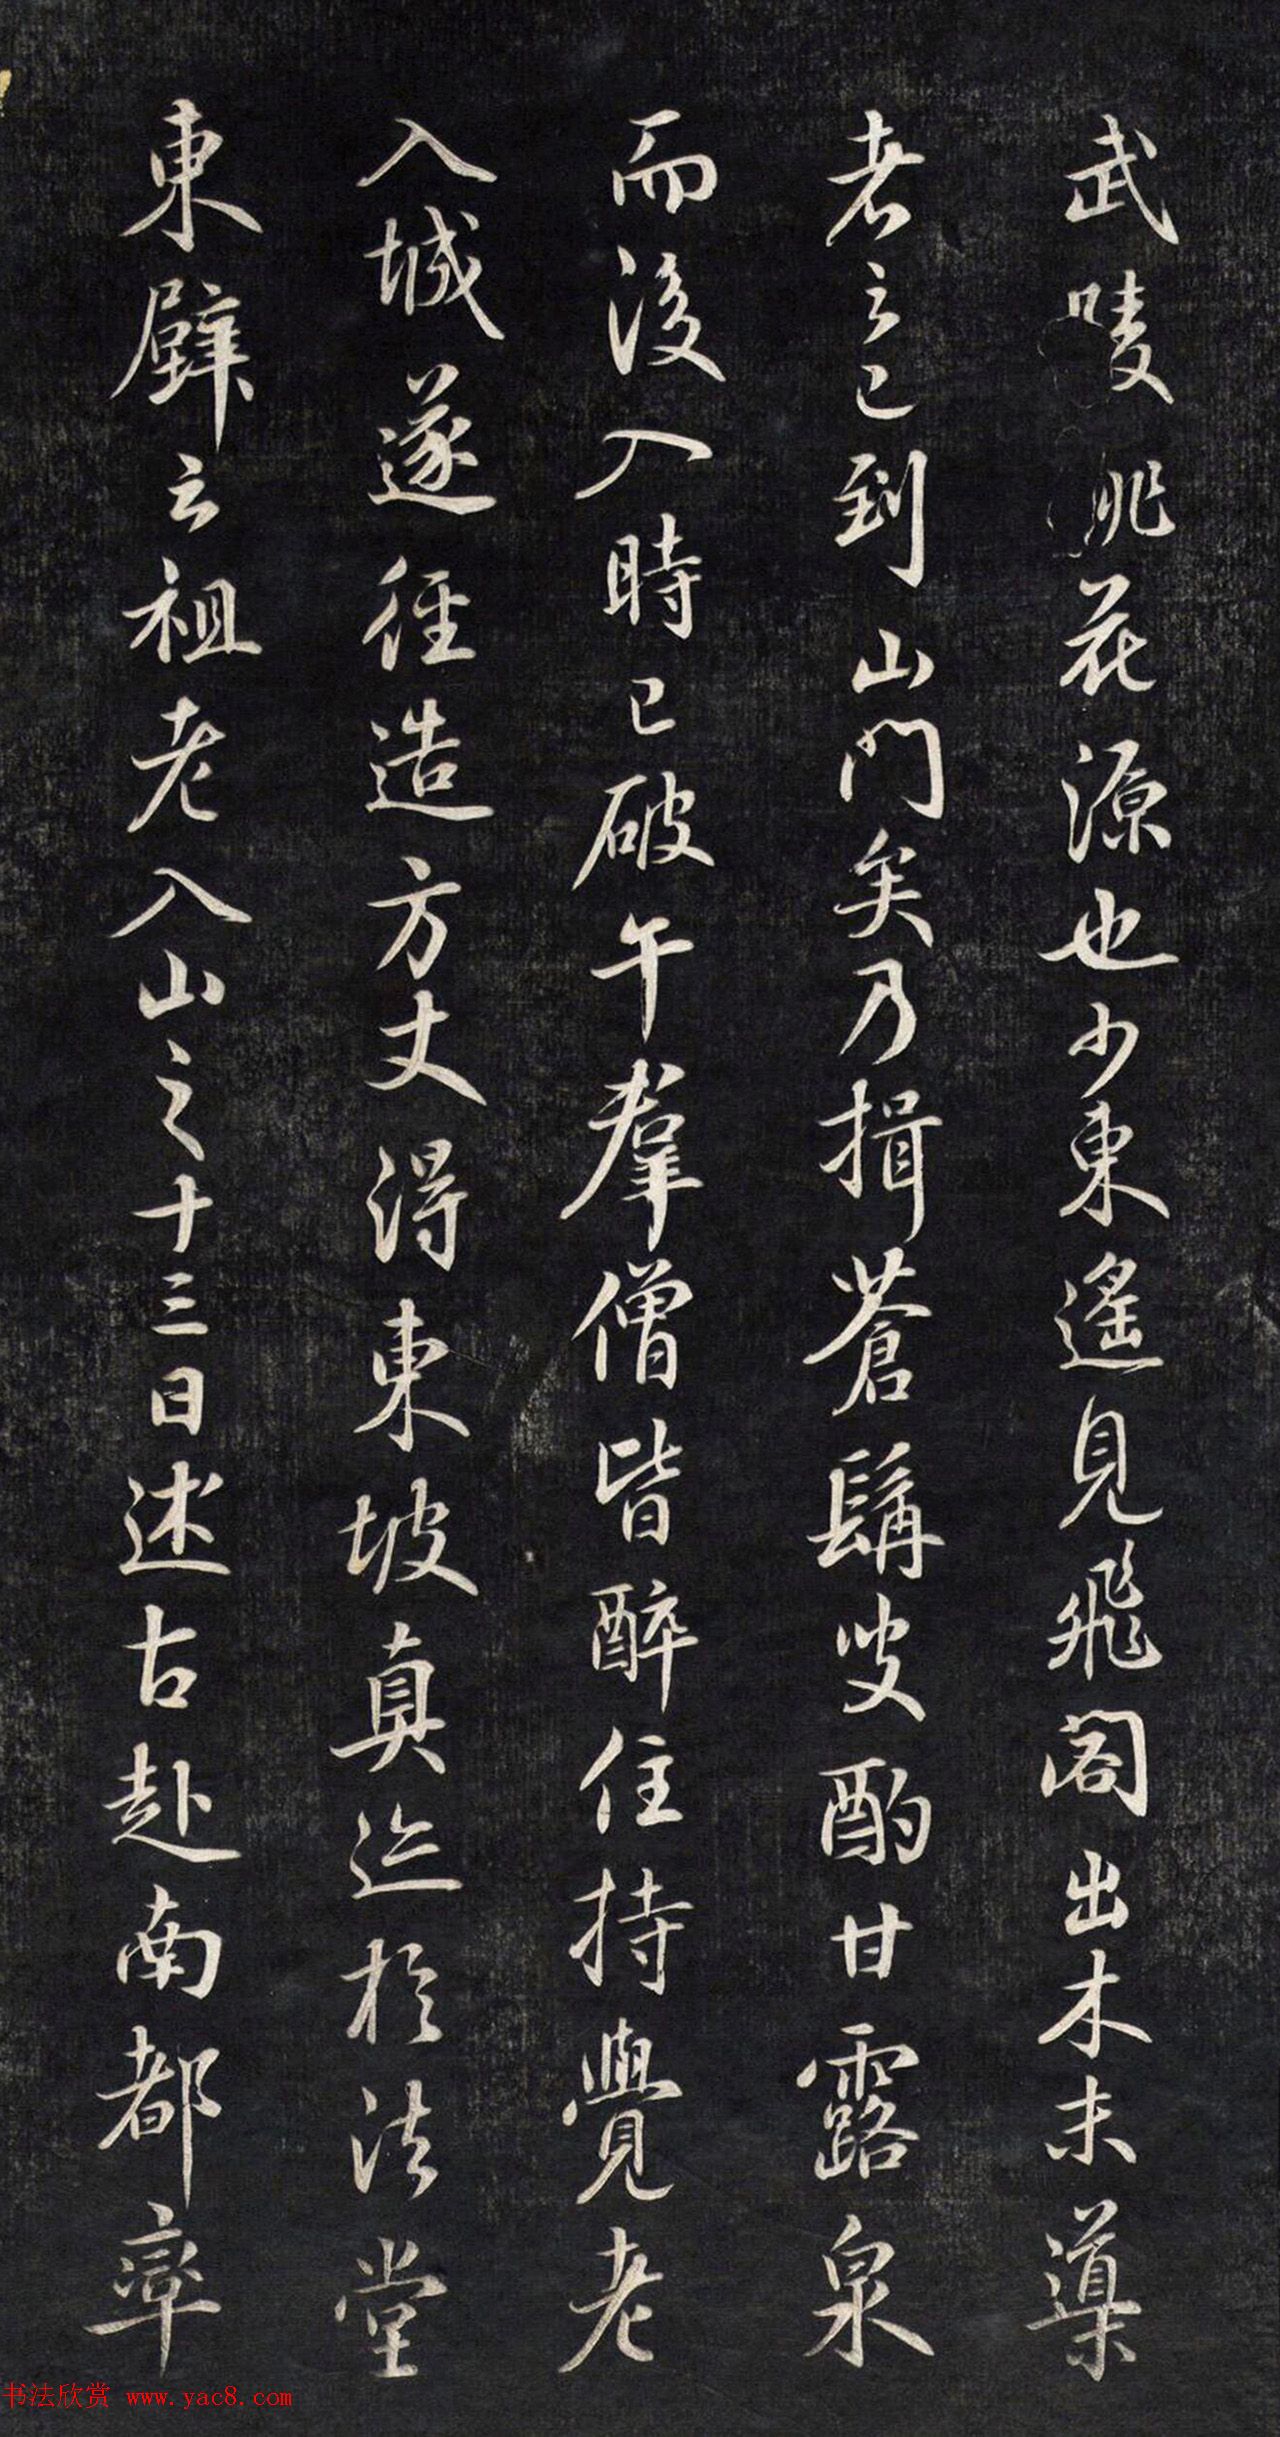 武陵桃花源也少東遙見飛閣出木末導
者言已到山門矣乃揖蒼髯叟酌甘露泉
而後入時已破午羣僧皆醉住持覺老
入城遂徑造方丈得東坡真迹於法堂
東壁云祖老入山之十三日述古赴南都率
书法欣赏 www.yac8.com